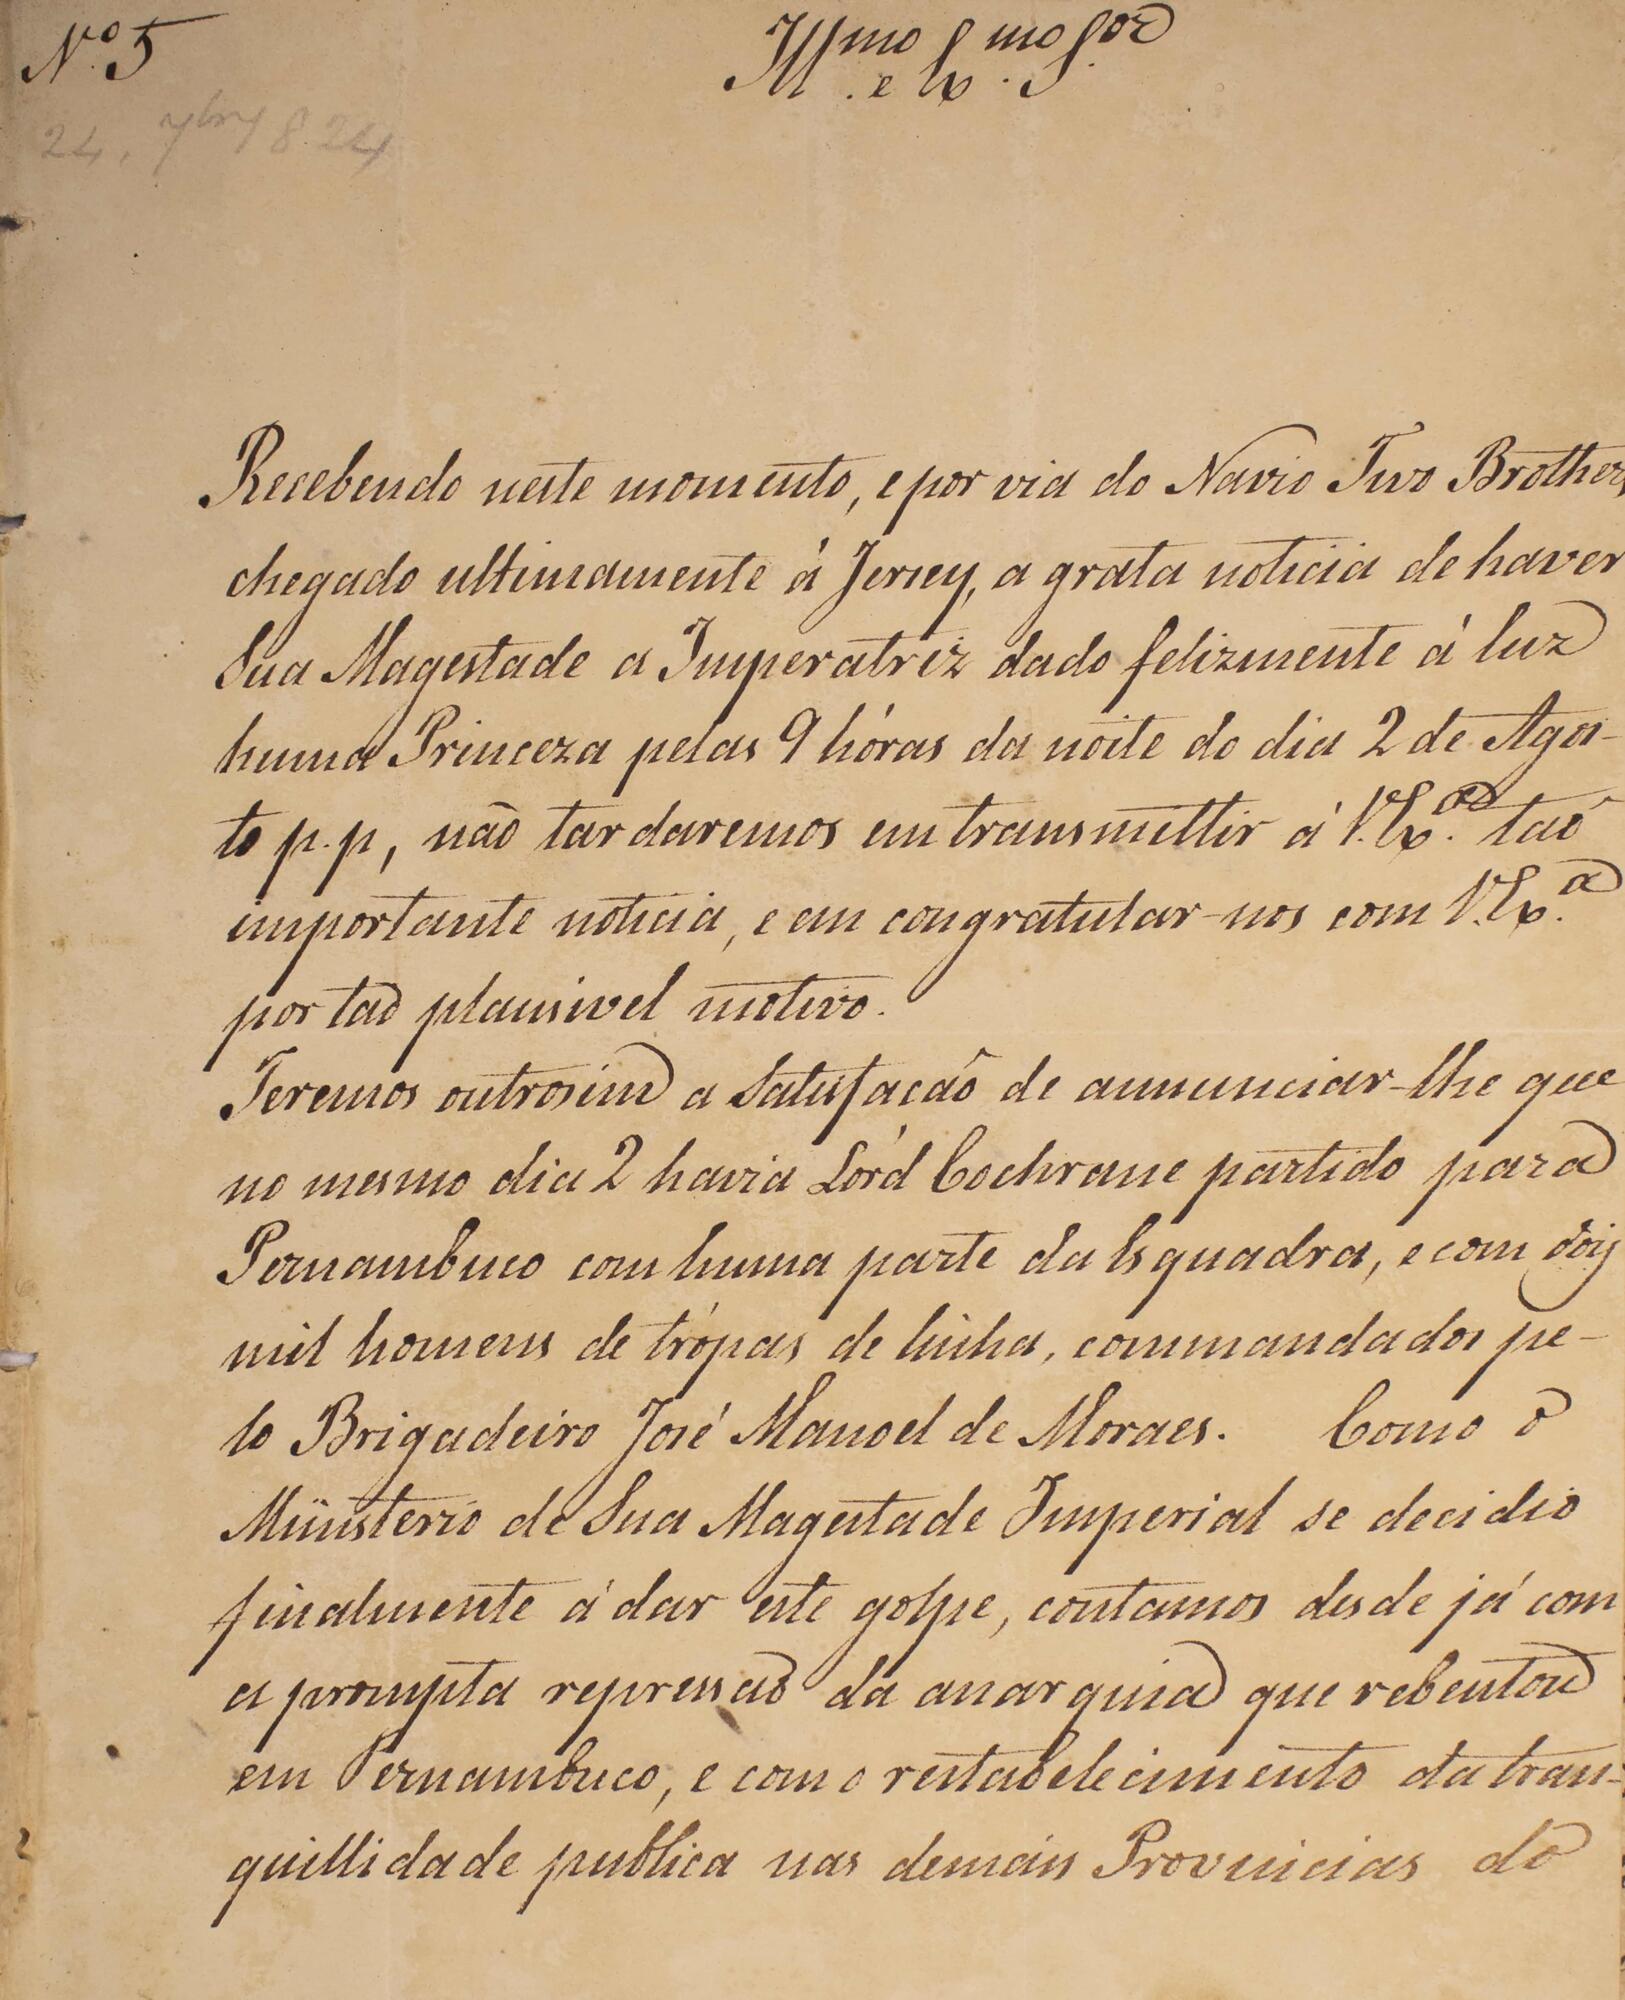 Nº 5
Illmo. e Exmo. Sor
24, 7bro 824
Recebendo neste momento, e por via do Navio Two Brothers,
chegado ultimamente á Jersey, a grata noticia de haver
Sua Magestade a Imperatriz dado felizmente á luz
huma Princeza pelas 9 hóras da noite do dia 2 de Agos-
to p.p, não tardaremos em transmittir á V. Exa. taõ
importante noticia, e em congratular-nos com V. Exa.
por taõ plausivel motivo.
Teremos outrosim a satisfacaõ de annunciar-lhe que
no mesmo dia 2 havia Lórd Cochrane partido para
Pernambuco com huma parte da Esquadra, e com dois
mil homens de trópas de linha, commandados pe-
lo Brigadeiro José Manoel de Moraes. Como o
Ministerio de Sua Magestade Imperial se decidio
finalmente á dar este golpe, contamos desde já com
a prompta repressaõ da anarquia que rebentou
em Pernambuco, e com o restabelecimento da tran-
quillidade publica nas demais Provincias do